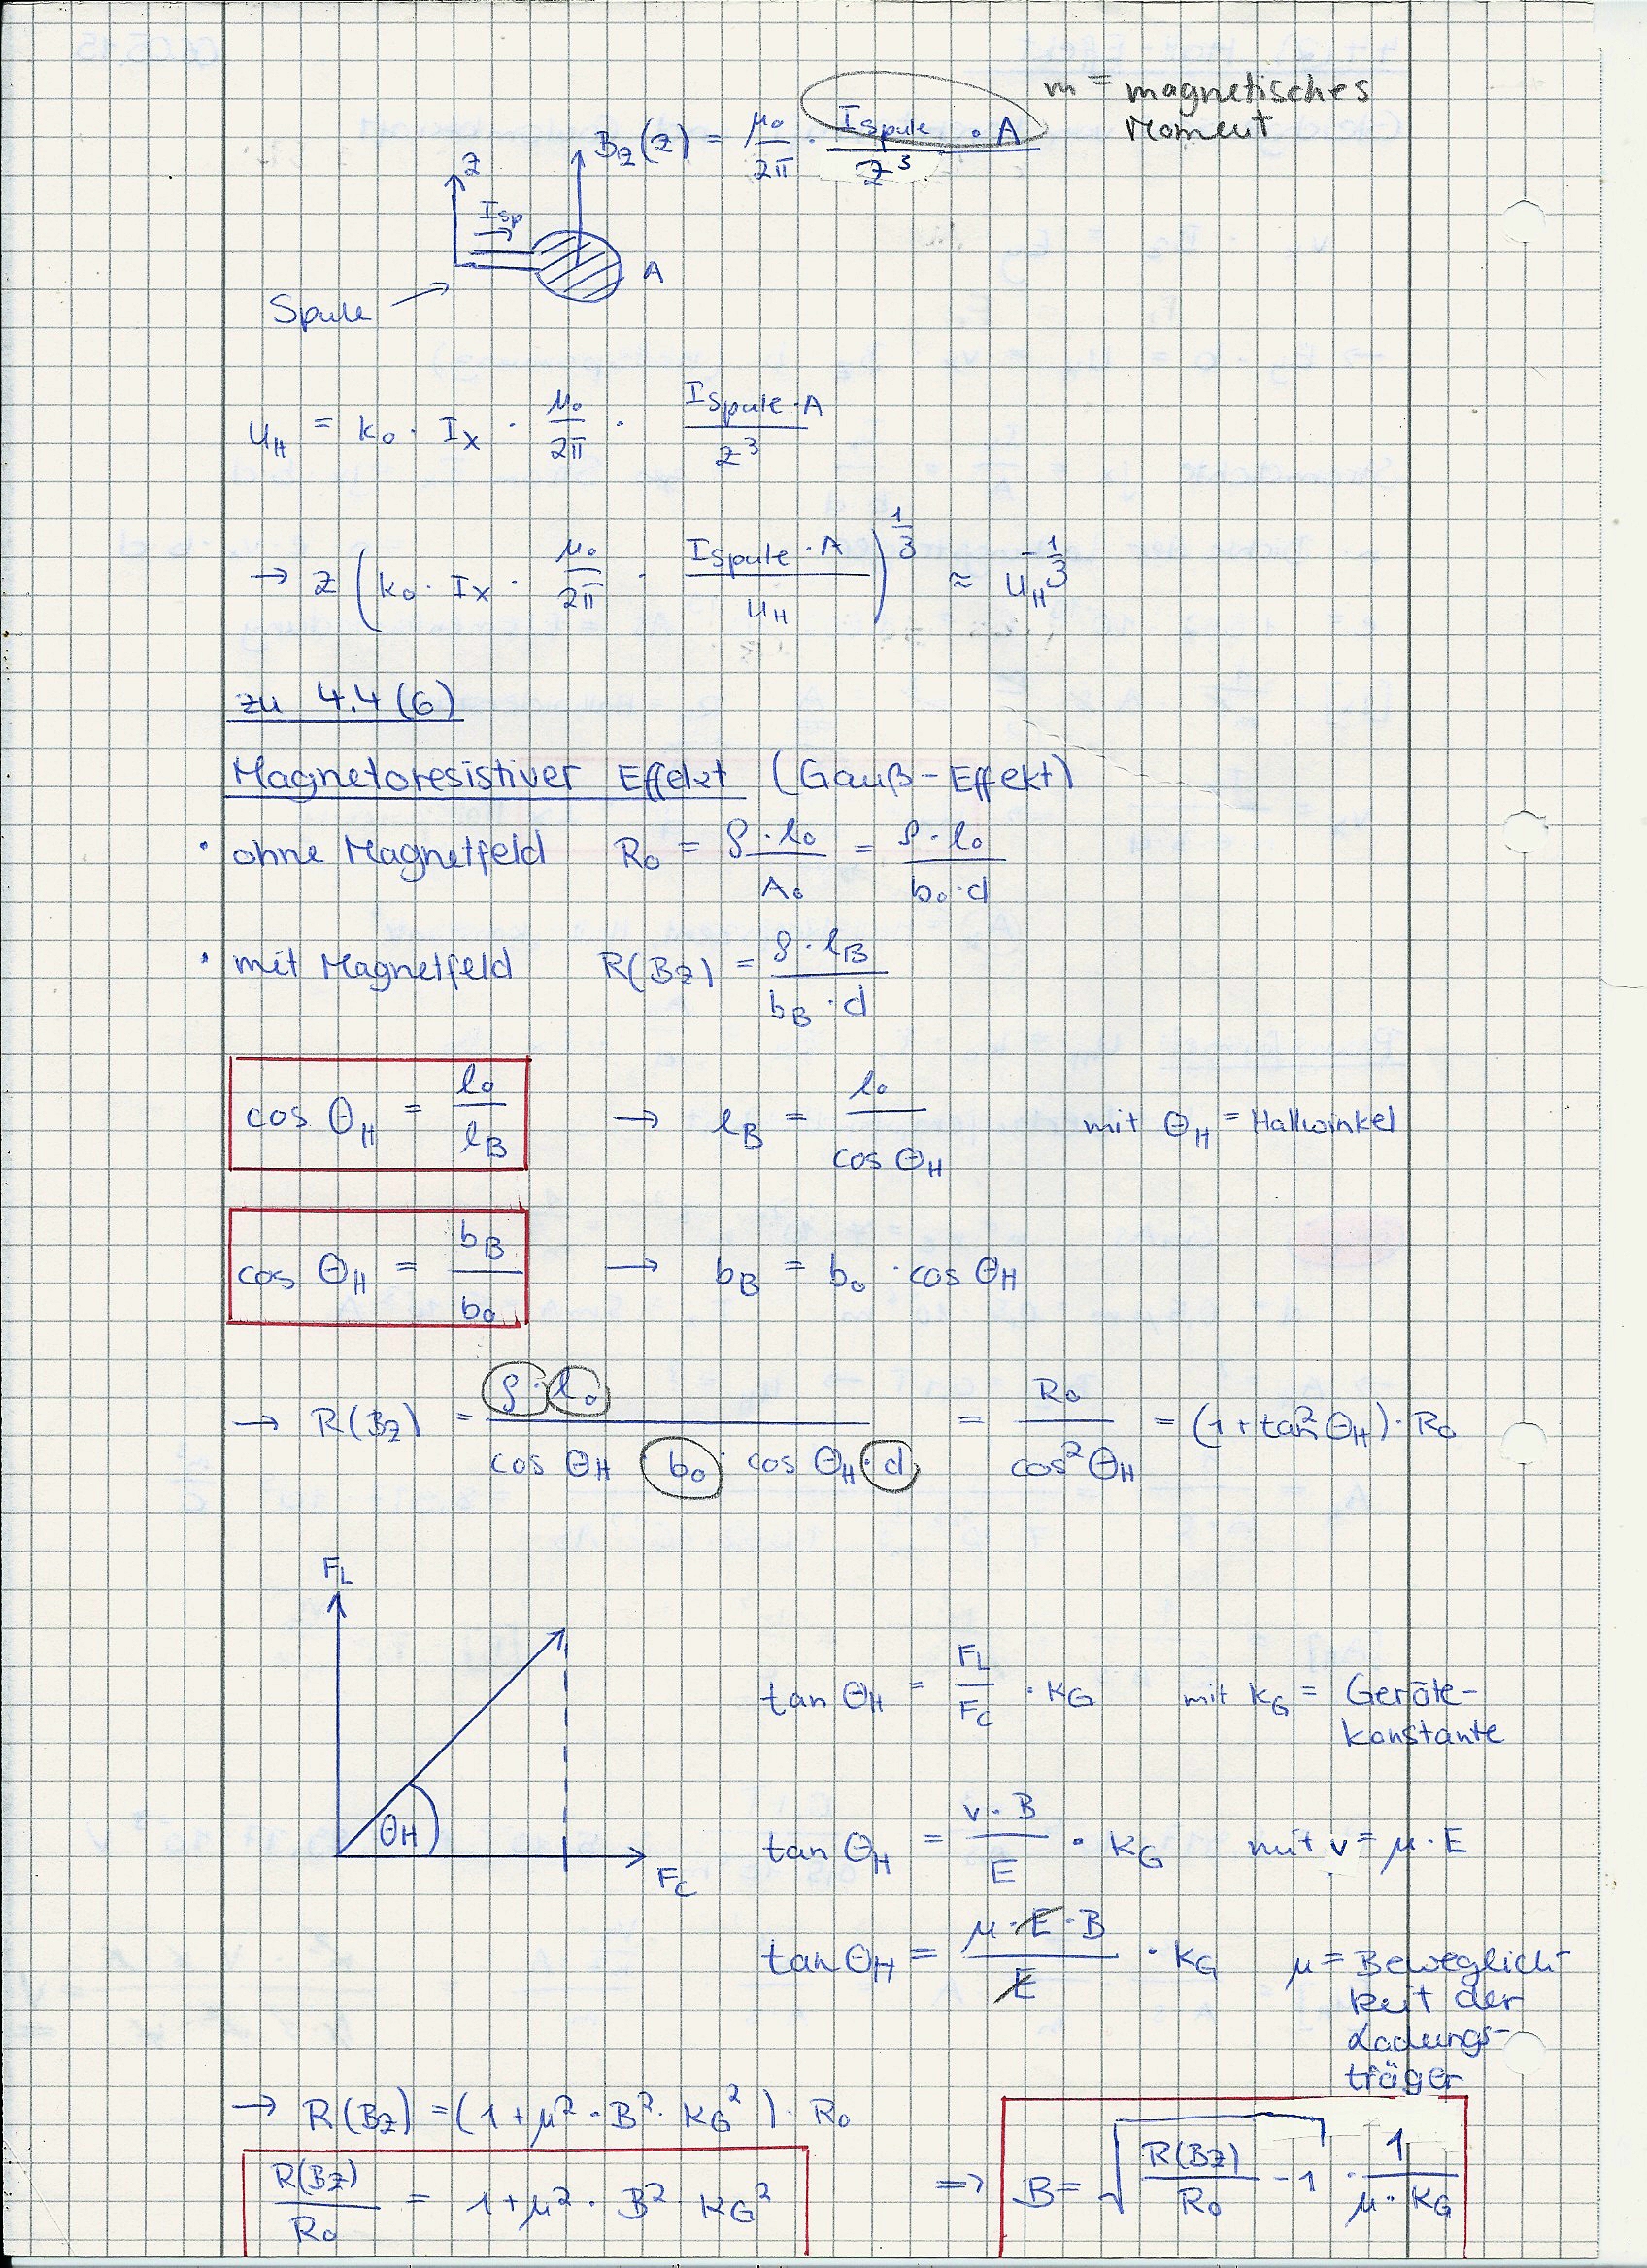 m = magnetisches
Moment
B_z(z) = μ₀/2π · I_Spule · A / z³
z
I_sp
A
Spule
u_H = k₀ · I_x · μ₀/2π · I_Spule · A / z³
→ z (k₀ · I_x · μ₀/2π · I_Spule · A / u_H)^(1/3) ≈ u_H^(-1/3)
zu 4.4 (6)
Magnetoresistiver Effekt (Gauß-Effekt)
· ohne Magnetfeld R₀ = ρ · l₀ / A₀ = ρ · l₀ / b₀ · d
· mit Magnetfeld R(B_z) = ρ · l_B / b_B · d
cos Θ_H = l₀ / l_B → l_B = l₀ / cos Θ_H mit Θ_H = Hallwinkel
cos Θ_H = b_B / b₀ → b_B = b₀ · cos Θ_H
→ R(B_z) = ρ · l₀ / cos Θ_H b₀ · cos Θ_H · d = R₀ / cos² Θ_H = (1 + tan² Θ_H) · R₀
F_L
Θ_H
F_C
tan Θ_H = F_L / F_C · K_G mit K_G = Geräte-
konstante
tan Θ_H = v · B / E · K_G mit v = μ · E
tan Θ_H = μ · E · B / E · K_G μ = Beweglich-
keit der
Ladungs-
träger
→ R(B_z) = (1 + μ² · B² · K_G²) · R₀
R(B_z) / R₀ = 1 + μ² · B² · K_G² ⇒ B = √(R(B_z) / R₀ - 1) · 1 / μ · K_G